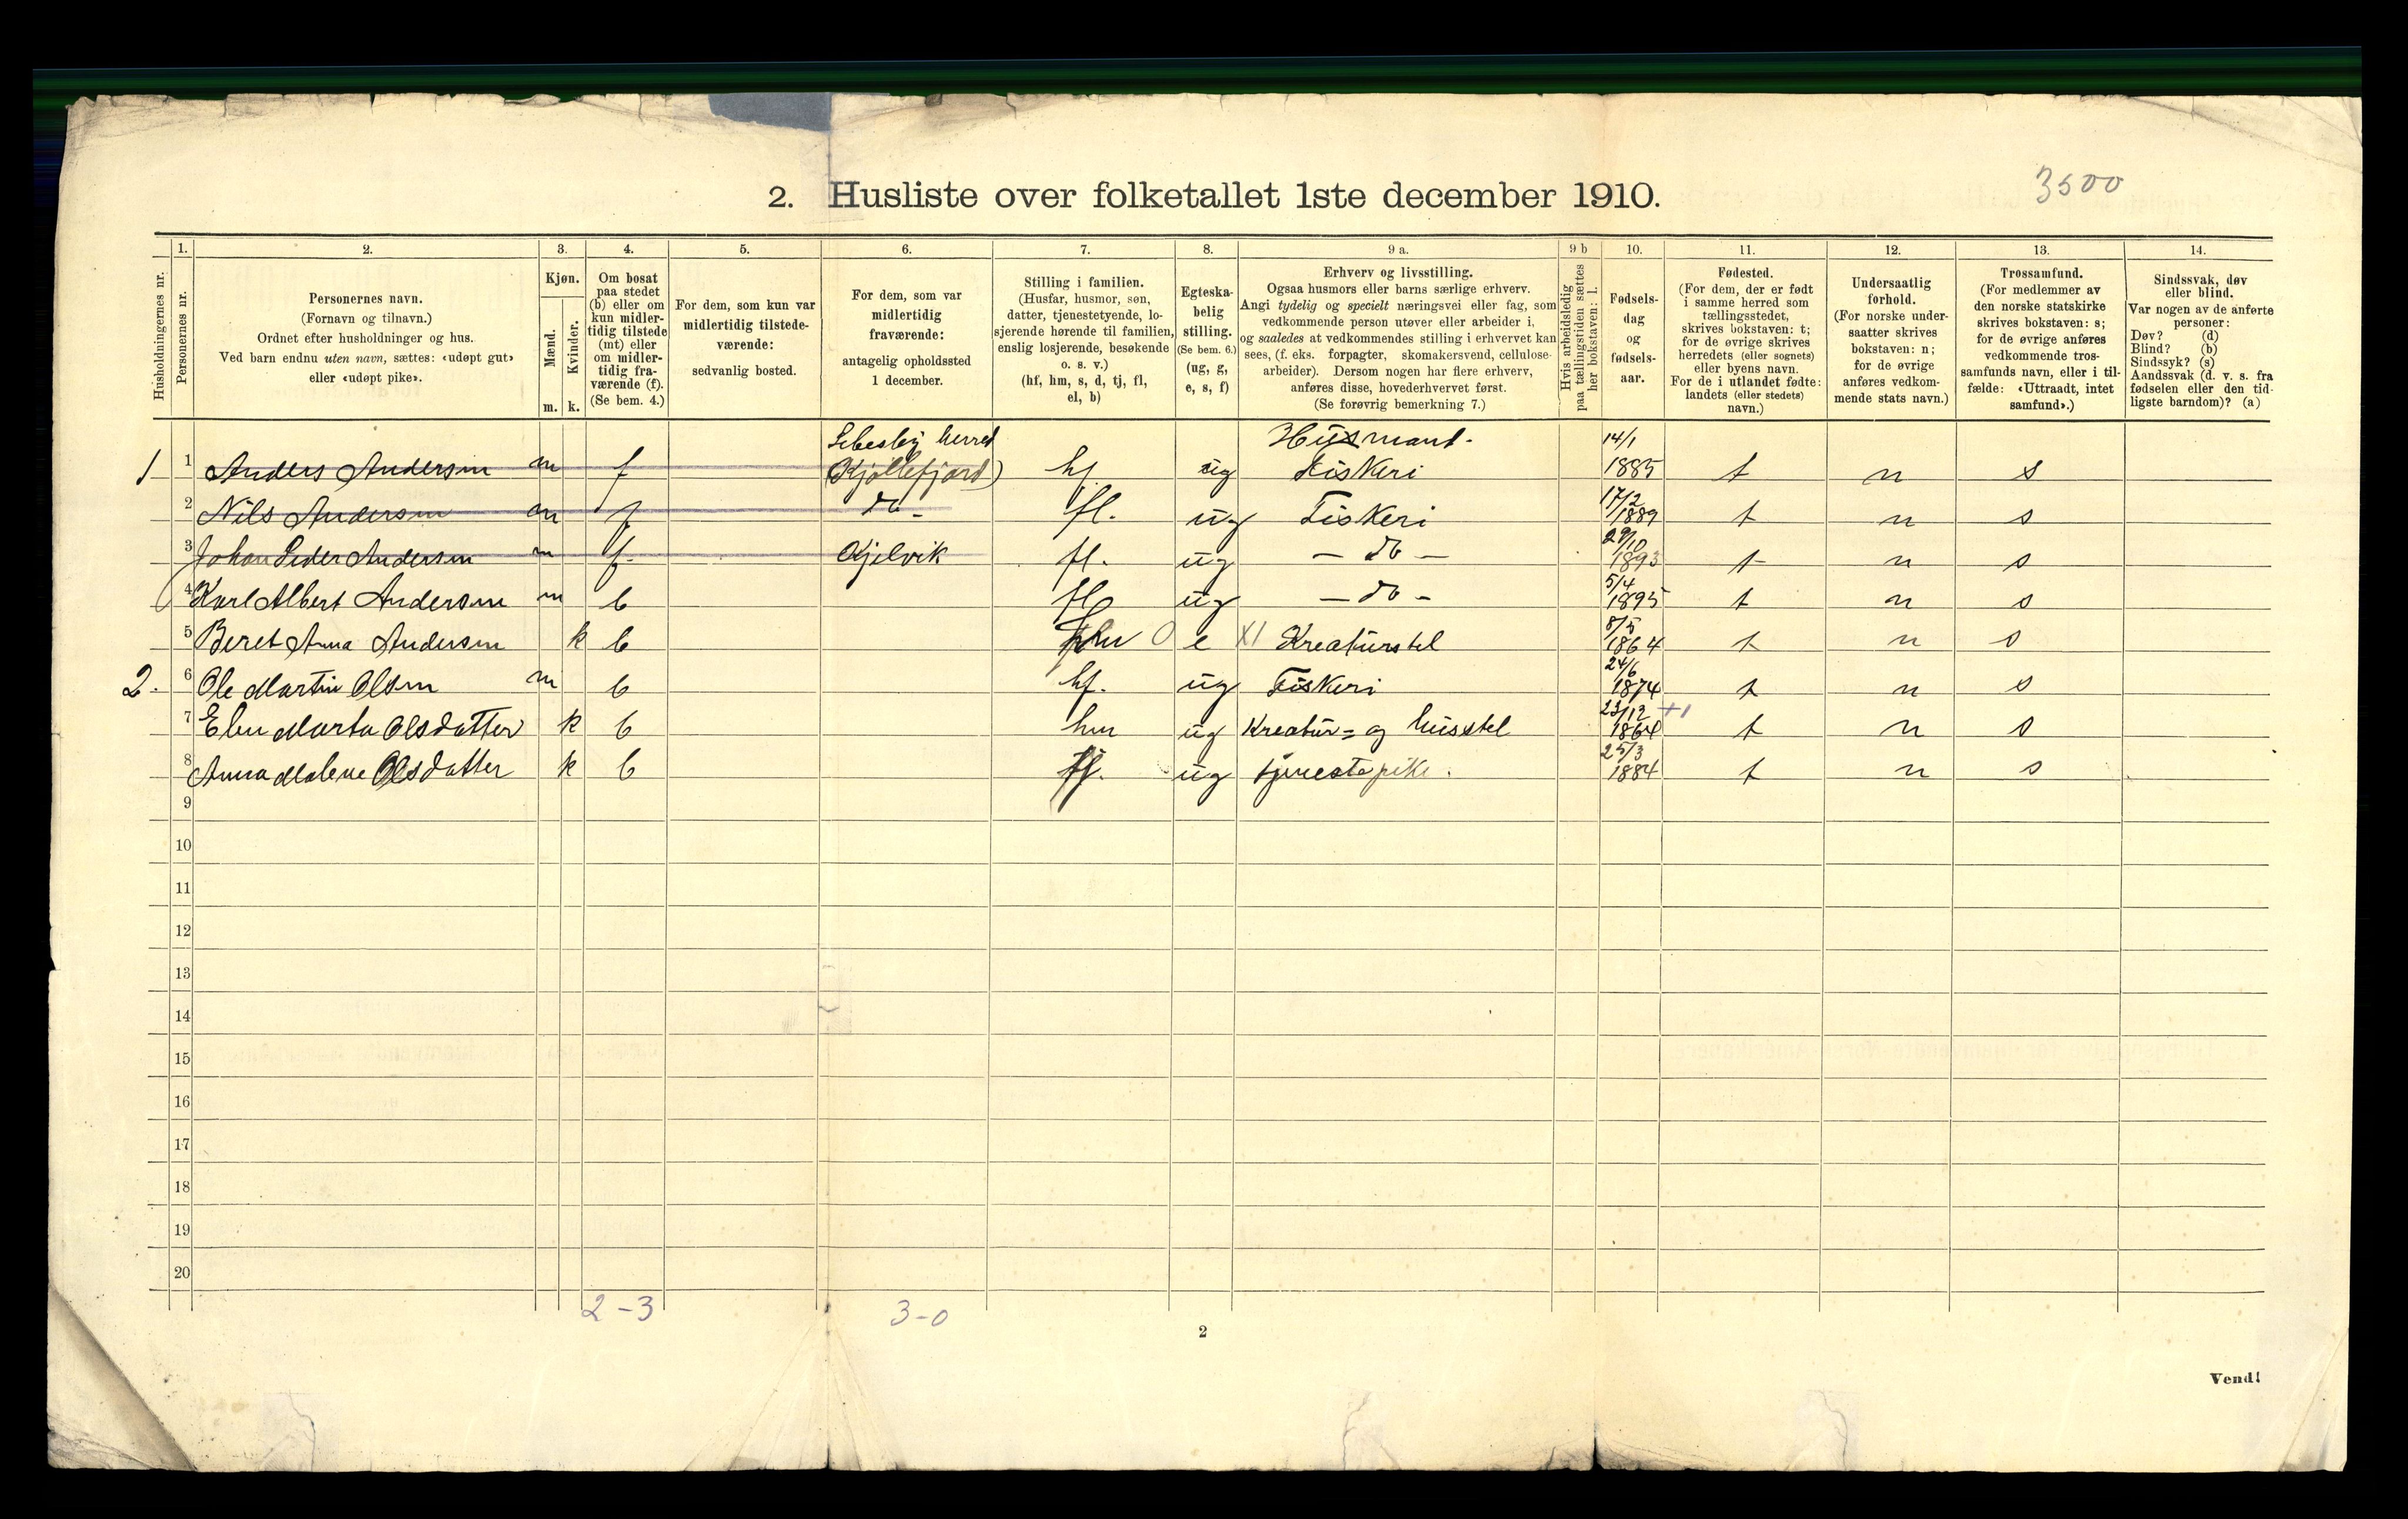 3500
2. Husliste over folketallet 1ste december 1910.
Husholdningernes nr.
1. Personernes nr.
2. Personernes navn. (Fornavn og tilnavn.) Ordnet efter husholdninger og hus. Ved barn endnu uten navn, sættes: «udøpt gut» eller «udøpt pike».
3. Kjøn. Mænd. m. Kvinder. k.
4. Om bosat paa stedet (b) eller om kun midlertidig tilstede (mt) eller om midlertidig fraværende (f). (Se bem. 4.)
5. For dem, som kun var midlertidig tilstedeværende: sedvanlig bosted.
6. For dem, som var midlertidig fraværende: antagelig opholdssted 1 december.
7. Stilling i familien. (Husfar, husmor, søn, datter, tjenestetyende, losjerende hørende til familien, enslig losjerende, besøkende o. s. v.) (hf, hm, s, d, tj, fl, el, b)
8. Egteskabelig stilling. (Se bem. 6.) (ug, g, e, s, f)
9 a. Erhverv og livsstilling. Ogsaa husmors eller barns særlige erhverv. Angi tydelig og specielt næringsvei eller fag, som vedkommende person utøver eller arbeider i, og saaledes at vedkommendes stilling i erhvervet kan sees, (f. eks. forpagter, skomakersvend, cellulosearbeider). Dersom nogen har flere erhverv, anføres disse, hovederhvervet først. (Se forøvrig bemerkning 7.)
9 b Hvis arbeidsledig paa tællingstiden sættes her bokstaven: l.
10. Fødselsdag og fødselsaar.
11. Fødested. (For dem, der er født i samme herred som tællingsstedet, skrives bokstaven: t; for de øvrige skrives herredets (eller sognets) eller byens navn. For de i utlandet fødte: landets (eller stedets) navn.)
12. Undersaatlig forhold. (For norske undersaatter skrives bokstaven: n; for de øvrige anføres vedkommende stats navn.)
13. Trossamfund. (For medlemmer av den norske statskirke skrives bokstaven: s; for de øvrige anføres vedkommende trossamfunds navn, eller i tilfælde: «Uttraadt, intet samfund».)
14. Sindssvak, døv eller blind. Var nogen av de anførte personer: Døv? (d) Blind? (b) Sindssyk? (s) Aandssvak (d. v. s. fra fødselen eller den tidligste barndom)? (a)
1 1 Anders Andersen m f Lebesby herred (Kjøllefjord) hf ug Husmand. Fiskeri 14/1 1885 t n s
2 Nils Andersen m f do - fl. ug Fiskeri 17/2 1889 t n s
3 Johan Peder Andersen m f Kjelvik fl. ug - do - 29/10 1893 t n s
4 Karl Albert Andersen m b fl ug - do - 5/4 1895 t n s
5 Beret Anna Andersen k b hm 0 e X1 Kreaturstel 8/5 1864 t n s
2. 6 Ole Martin Olsen m b hf. ug Fiskeri 24/6 1874 t n s
7 Elen Marta Olsdatter k b hm ug Kreatur= og husstel 23/12 1864 +1 t n s
8 Anna Malene Olsdatter k b tj. ug tjenestepike. 25/3 1884 t n s
9
10
11
12
13
14
15
16
17
18
19
20
2-3 3-0
2
Vend!